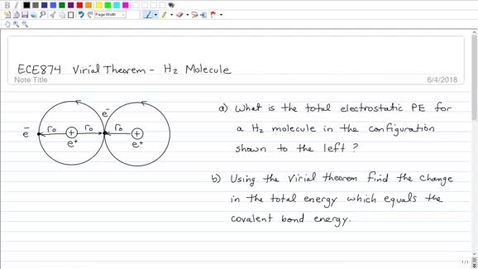 Page Width
ECE874 Virial Theorem - H2 Molecule
Note Title
6/4/2018
e-
a) What is the total electrostatic PE for
e-
r0
r0
r0
a H2 molecule in the configuration
e+
e+
shown to the left?
b) Using the Virial theorem find the change
in the total energy which equals the
covalent bond energy.
1/1